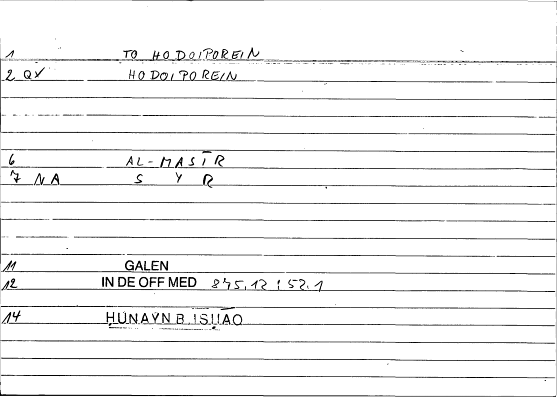 1 TO HODOIPOREIN
2 QV HODOIPOREIN
6 AL-MASĪR
7 NA S Y R
11 GALEN
12 IN DE OFF MED 845.12 : 52.1
14 ḤUNAYN B. ISḤĀQ